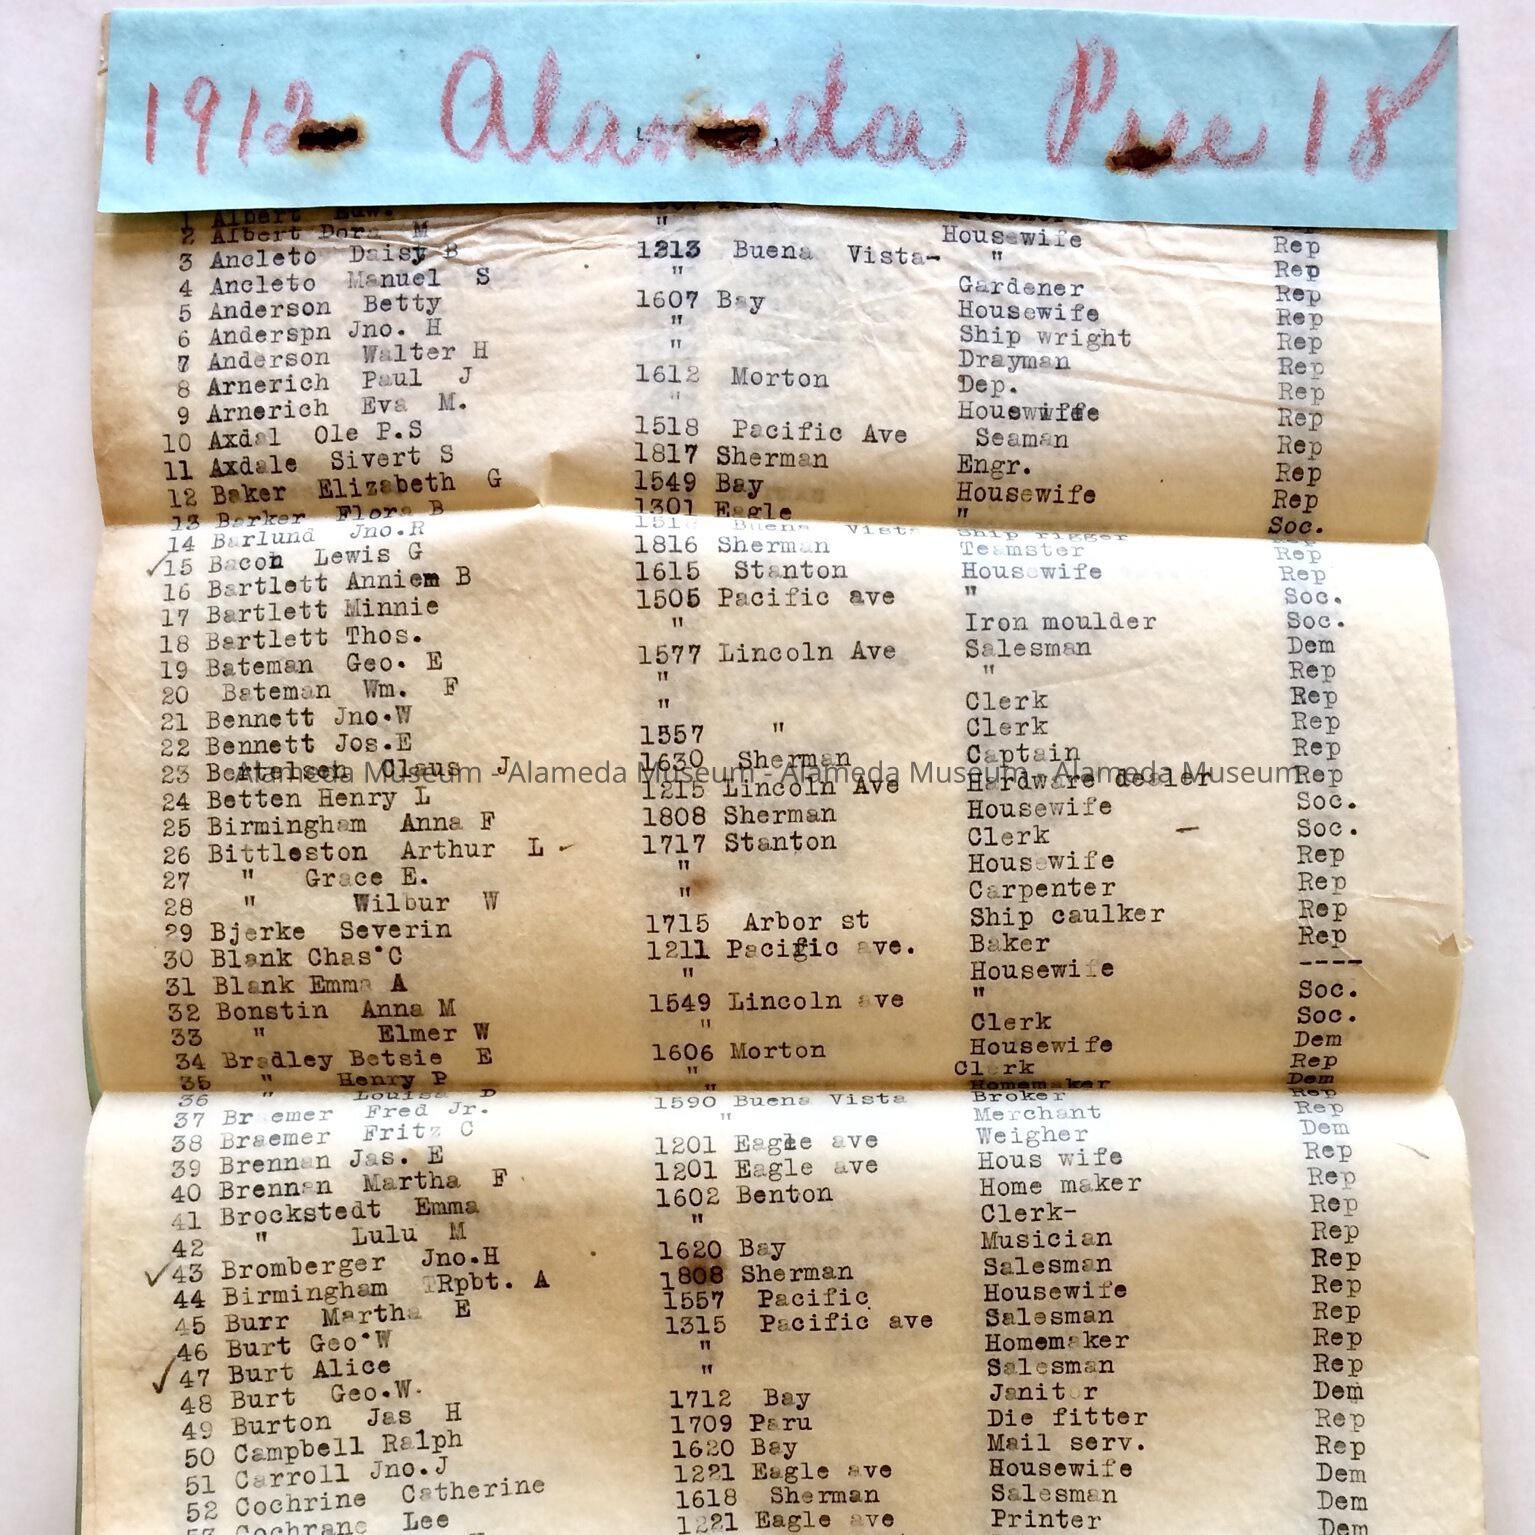 1912 Alameda Pre 18
1 Albert Edw.
2 Albert Dora M " Housewife Rep
3 Ancleto Daisy B 1213 Buena Vista- " Rep
4 Ancleto Manuel S " Gardener Rep
5 Anderson Betty 1607 Bay Housewife Rep
6 Anderspn Jno. H " Ship wright Rep
7 Anderson Walter H " Drayman Rep
8 Arnerich Paul J 1612 Morton Dep. Rep
9 Arnerich Eva M. " Housewife Rep
10 Axdal Ole P.S 1518 Pacific Ave Seaman Rep
11 Axdale Sivert S 1817 Sherman Engr. Rep
12 Baker Elizabeth G 1549 Bay Housewife Rep
13 Barker Flora B 1301 Eagle " Soc.
14 Barlund Jno.R Buena Vista Ship rigger Rep
15 Bacon Lewis G 1816 Sherman Teamster Rep
16 Bartlett Anniem B 1615 Stanton Housewife Rep
17 Bartlett Minnie 1505 Pacific ave " Soc.
18 Bartlett Thos. " Iron moulder Soc.
19 Bateman Geo. E 1577 Lincoln Ave Salesman Dem
20 Bateman Wm. F " " Rep
21 Bennett Jno.W " Clerk Rep
22 Bennett Jos.E 1557 " Clerk Rep
23 Claus J 1630 Sherman Captain Rep
Alameda Museum - Alameda Museum - Alameda Museum - Alameda Museum
24 Betten Henry L 1215 Lincoln Ave Hardware dealer Rep
25 Birmingham Anna F 1808 Sherman Housewife Soc.
26 Bittleston Arthur L 1717 Stanton Clerk Soc.
27 " Grace E. " Housewife Rep
28 " Wilbur W " Carpenter Rep
29 Bjerke Severin 1715 Arbor st Ship caulker Rep
30 Blank Chas.C 1211 Pacific ave. Baker Rep
31 Blank Emma A " Housewife ----
32 Bonstin Anna M 1549 Lincoln ave " Soc.
33 " Elmer W " Clerk Soc.
34 Bradley Betsie E 1606 Morton Housewife Dem
35 " Henry P " Clerk Rep
36 " Louisa P " Homemaker Dem
37 Braemer Fred Jr. 1590 Buena Vista Broker Rep
38 Braemer Fritz C " Merchant Rep
39 Brennan Jas. E 1201 Eagle ave Weigher Dem
40 Brennan Martha F 1201 Eagle ave Housewife Rep
41 Brockstedt Emma 1602 Benton Home maker Rep
42 " Lulu M " Clerk- Rep
43 Bromberger Jno.H 1620 Bay Musician Rep
44 Birmingham Rpbt. A 1808 Sherman Salesman Rep
45 Burr Martha E 1557 Pacific Housewife Rep
46 Burt Geo.W 1315 Pacific ave Salesman Rep
47 Burt Alice " Homemaker Rep
48 Burt Geo.W. " Salesman Rep
49 Burton Jas H 1712 Bay Janitor Dem
50 Campbell Ralph 1709 Paru Die fitter Rep
51 Carroll Jno.J 1620 Bay Mail serv. Rep
52 Cochrine Catherine 1221 Eagle ave Housewife Dem
53 Cochrane Lee 1618 Sherman Salesman Dem
1221 Eagle ave Printer Dem